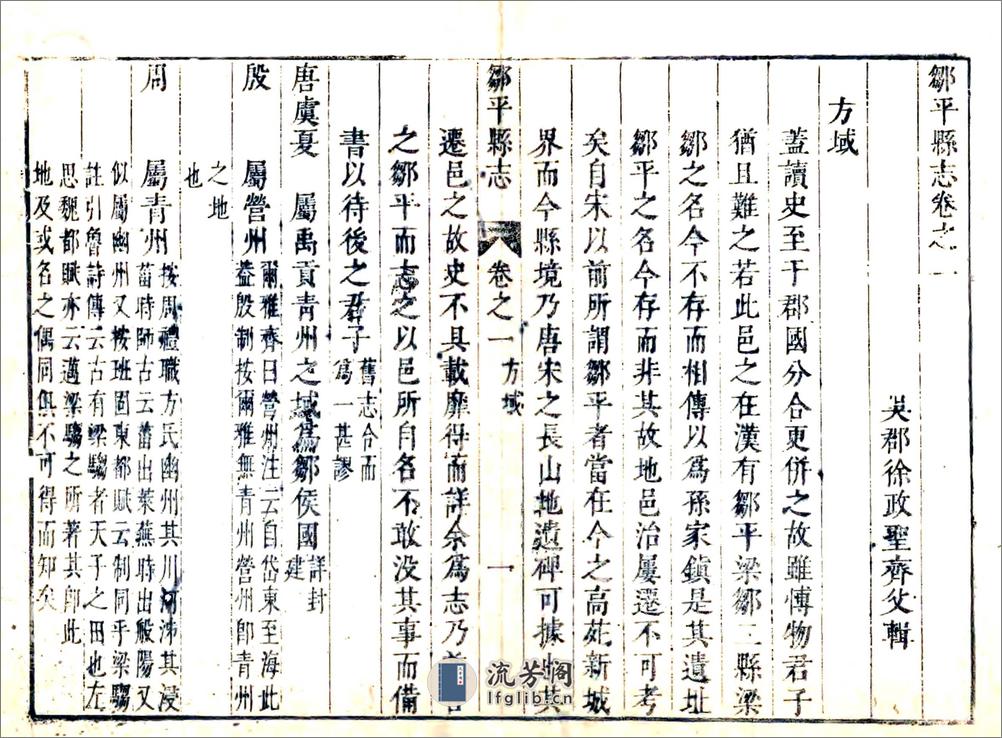 鄒平縣志卷之一
吳郡徐政聖齊父輯
方域
蓋讀史至于郡國分合更併之故雖博物君子
猶且難之若此邑之在漢有鄒平梁鄒二縣梁
鄒之名今不存而相傳以爲孫家鎮是其遺址
鄒平之名今存而非其故地邑治屢遷不可考
矣自宋以前所謂鄒平者當在今之高苑新城
界而今縣境乃唐宋之長山地遺碑可據也其
鄒平縣志 卷之一 方域 一
遷邑之故史不具載靡得而詳余爲志乃
之鄒平而志之以邑所自名不敢没其事而備
書以待後之君子舊志合而爲一甚謬
唐虞夏 屬禹貢青州之域爲鄒侯國詳封建
殷 屬營州爾雅齊曰營州注云自岱東至海此
蓋殷制按爾雅無青州營州卽青州
之地
也
周 屬青州按周禮職方氏幽州其川河泲其浸
菑時師古云菑出萊蕪時出般陽又
似屬幽州又按班固東都賦云制同乎梁騶
註引魯詩傳云古有梁騶者天子之田也左
思魏都賦亦云邁梁騶之所著其卽此
地及或名之偶同俱不可得而知矣
流芳閣
lfglib.cn